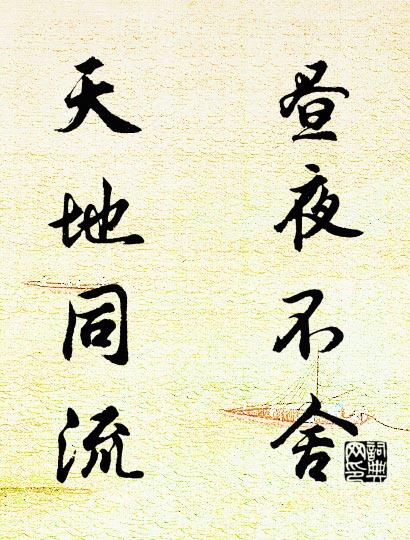 昼夜不舍
天地同流
詞典
网印